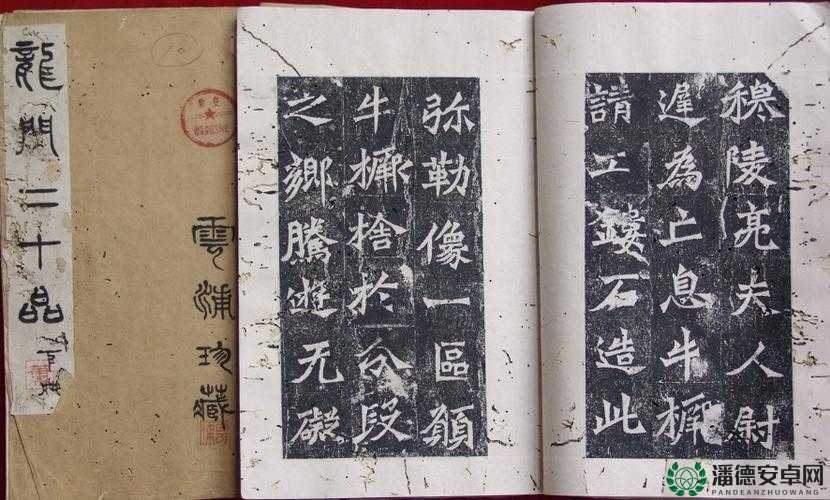 龍門二十品
雲浦珍藏
穆陵亮夫人尉
遲為亡息牛橛
請工鏤石造此
弥勒像一區願
牛橛捨於分段
之鄉騰遊无礙
潘德安卓网
PANDEANZHUOWANG